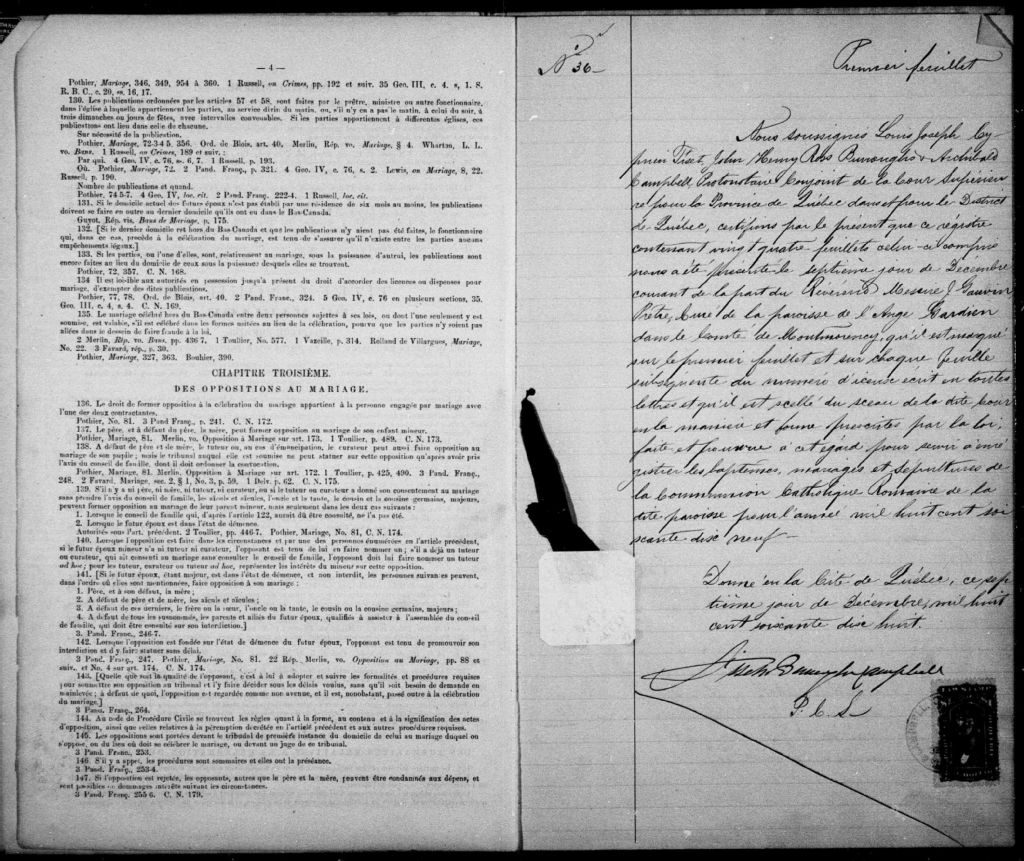 — 4 —
Pothier, Mariage, 346, 349, 954 à 360. 1 Russell, on Crimes, pp. 192 et suiv. 35 Geo. III, c. 4. s, 1. S.
R. B. C., c. 20, ss. 16, 17.
130. Les publications ordonnées par les articles 57 et 58, sont faites par le prêtre, ministre ou autre fonctionnaire,
dans l'église à laquelle appartiennent les parties, au service divin du matin, ou, s'il n'y en a pas le matin, à celui du soir, à
trois dimanches ou jours de fêtes, avec intervalles convenables. Si les parties appartiennent à différentes églises, ces
publications ont lieu dans celle de chacune.
Sur nécessité de la publication.
Pothier, Mariage, 72-3-4 5. 356. Ord. de Blois, art. 40. Merlin, Rép. vo. Mariage, § 4. Wharton, L. L.
vo. Bans. 1 Russell, on Crimes, 189 et suiv. ;
Par qui. 4 Geo. IV, c. 76, s. 6, 7. 1 Russell, p. 193.
Où. Pothier, Mariage, 72. 2 Pand. Franç., p. 321. 4 Geo. IV, c. 76, s. 2. Lewis, on Mariage, 8, 22.
Russell, p. 190.
Nombre de publications et quand.
Pothier, 74 5-7. 4 Geo. IV, loc. cit. 2 Pand. Franç. 222-4. 1 Russell, loc. cit.
131. Si le domicile actuel des futurs époux n'est pas établi par une résidence de six mois au moins, les publications
doivent se faire en outre au dernier domicile qu'ils ont eu dans le Bas-Canada.
Guyot, Rép. vis. Bans de Mariage, p. 175.
132. [Si le dernier domicile est hors du Bas-Canada et que les publications n'y aient pas été faites, le fonctionnaire
qui, dans ce cas, procède à la célébration du mariage, est tenu de s'assurer qu'il n'existe entre les parties aucuns
empêchements légaux.]
133. Si les parties, ou l'une d'elles, sont, relativement au mariage, sous la puissance d'autrui, les publications sont
encore faites au lieu du domicile de ceux sous la puissance desquels elles se trouvent.
Pothier, 72, 357. C. N. 168.
134 Il est loisible aux autorités en possession jusqu'à présent du droit d'accorder des licences ou dispenses pour
mariage, d'exempter des dites publications.
Pothier, 77, 78. Ord. de Blois, art. 40. 2 Pand. Franc., 324. 5 Geo. IV, c. 76 en plusieurs sections, 35.
Geo. III, c. 4, s. 4. C. N. 169.
135. Le mariage célébré hors du Bas-Canada entre deux personnes sujettes à ses lois, ou dont l'une seulement y est
soumise, est valable, s'il est célébré dans les formes usitées au lieu de la célébration, pourvu que les parties n'y soient pas
allées dans le dessein de faire fraude à la loi.
2 Merlin, Rép. vo. Bans, pp. 436 7. 1 Toullier, No. 577. 1 Vazeille, p. 314. Rolland de Villargues, Mariage,
No. 22. 3 Favard, rép., p. 30.
Pothier, Mariage, 327, 363. Bouhier, 390.
CHAPITRE TROISIÈME.
DES OPPOSITIONS AU MARIAGE.
136. Le droit de former opposition à la célébration du mariage appartient à la personne engagée par mariage avec
l'une des deux contractantes.
Pothier, No. 81. 3 Pand Franç., p. 241. C. N. 172.
137. Le père, et à défaut du père, la mère, peut former opposition au mariage de son enfant mineur.
Pothier, Mariage, 81. Merlin, vo. Opposition à Mariage sur art. 173. 1 Toullier, p. 489. C. N. 173.
138. A défaut de père et de mère, le tuteur ou, au cas d'émancipation, le curateur peut aussi faire opposition
au mariage de son pupile ; mais le tribunal auquel elle est soumise ne peut statuer sur cette opposition qu'après avoir pris
l'avis du conseil de famille, dont il doit ordonner la convocation.
Pothier, Mariage, 81. Merlin, Opposition à Mariage sur art. 172. 1 Toullier, p. 425, 490. 3 Pand. Franç.,
248. 2 Favard, Mariage, sec. 2, § 1, No. 3, p. 59. 1 Delv. p. 62. C. N. 175.
139. S'il n'y a ni père, ni mère, ni tuteur, ni curateur, ou si le tuteur ou curateur a donné son consentement au mariage
sans prendre l'avis du conseil de famille, les aïeuls et aïeules, l'oncle et la tante, le cousin et la cousine germains, majeurs,
peuvent former opposition au mariage de leur parent mineur, mais seulement dans les deux cas suivants :
1. Lorsque le conseil de famille qui, d'après l'article 122, aurait dû être consulté, ne l'a pas été.
2. Lorsque le futur époux est dans l'état de démence.
Autorités sous l'art. précédent. 2 Toullier, pp. 446-7. Pothier, Mariage, No. 81, C. N. 174.
140. Lorsque l'opposition est faite dans les circonstances et par une des personnes énumérées en l'article précédent,
si le futur époux mineur n'a ni tuteur ni curateur, l'opposant est tenu de lui en faire nommer un ; s'il a déjà un tuteur
ou curateur, qui ait consenti au mariage sans consulter le conseil de famille, l'opposant doit lui faire nommer un tuteur
ad hoc ; pour les tuteur, curateur ou tuteur ad hoc, représenter les intérêts du mineur sur cette opposition.
141. [Si le futur époux, étant majeur, est dans l'état de démence, et non interdit, les personnes suivantes peuvent,
dans l'ordre où elles sont mentionnées, faire opposition à son mariage ;
1. Père, et à son défaut, la mère ;
2. A défaut de père et de mère, les aïeuls et aïeules ;
3. A défaut de ces derniers, le frère ou la sœur, l'oncle ou la tante, le cousin ou la cousine germains, majeurs ;
4. A défaut de tous les susnommés, les parents et alliés du futur époux, qualifiés à assister à l'assemblée du conseil
de famille, qui doit être consulté sur son interdiction.]
3. Pand. Franc., 246-7.
142. Lorsque l'opposition est fondée sur l'état de démence du futur époux, l'opposant est tenu de promouvoir son
interdiction et d'y faire statuer sans délai.
3 Pand. Franç., 247. Pothier, Mariage, No. 81. 22 Rép. Merlin, vo. Opposition au Mariage, pp. 88 et
suiv. et No. 4 sur art. 174. C. N. 174.
143. [Quelle que soit la qualité de l'opposant, c'est à lui à adopter et suivre les formalités et procédures requises
pour soumettre son opposition au tribunal et l'y faire décider sous les délais voulus, sans qu'il soit besoin de demande en
mainlevée ; à défaut de quoi, l'opposition est regardée comme non avenue, et il est, nonobstant, passé outre à la célébration
du mariage.]
3 Pand. Franç., 264.
144. Au code de Procédure Civile se trouvent les règles quant à la forme, au contenu et à la signification des actes
d'opposition, ainsi que celles relatives à la péremption décrétée en l'article précédent et aux autres procédures requises.
145. Les oppositions sont portées devant le tribunal de première instance du domicile de celui au mariage duquel on
s'oppose, ou du lieu où doit se célébrer le mariage, ou devant un juge de ce tribunal.
3 Pand. Franc., 253.
146. S'il y a appel, les procédures sont sommaires et elles ont la préséance.
3. Pand. Franç., 253-4.
147. Si l'opposition est rejetée, les opposants, autres que le père et la mère, peuvent être condamnés aux dépens, et
sont passibles de dommages intérêts suivant les circonstances.
3 Pand. Franç. 255 6. C. N. 179.
No 36
Premier feuillet
Nous soussignés Louis Joseph Cy-
prien Fiset, John Henry Ross Burroughs & Archibald
Campbell, Protonotaire Conjoint de la Cour Supérieu-
re pour la Province de Québec dans et pour le District
de Québec, certifions par le présent que ce régistre
contenant vingt quatre feuillets celui-ci compris
nous a été présenté le septième jour de Décembre
courant de la part du Révérend Messire J. Gauvin
Prêtre, Curé de la paroisse de l'Ange Gardien
dans le Comté de Montmorency, qu'il est marqué
sur le premier feuillet et sur chaque feuille
subséquente du numéro d'icence écrit en toutes
lettres et qu'il est scellé du sceau de la dite Cour
en la manière et forme prescrites par la loi,
faite et pourvue à cet égard pour servir à enré-
gistrer les baptêmes, mariages et sépultures de
la Communion Catholique Romaine de la
dite paroisse pour l'année mil huit cent soi-
xante dix neuf—
Donné en la Cité de Québec, ce sep-
tième jour de Décembre, mil huit
cent soixante dix huit.
Fiset Burroughs Campbell
P. C. S.